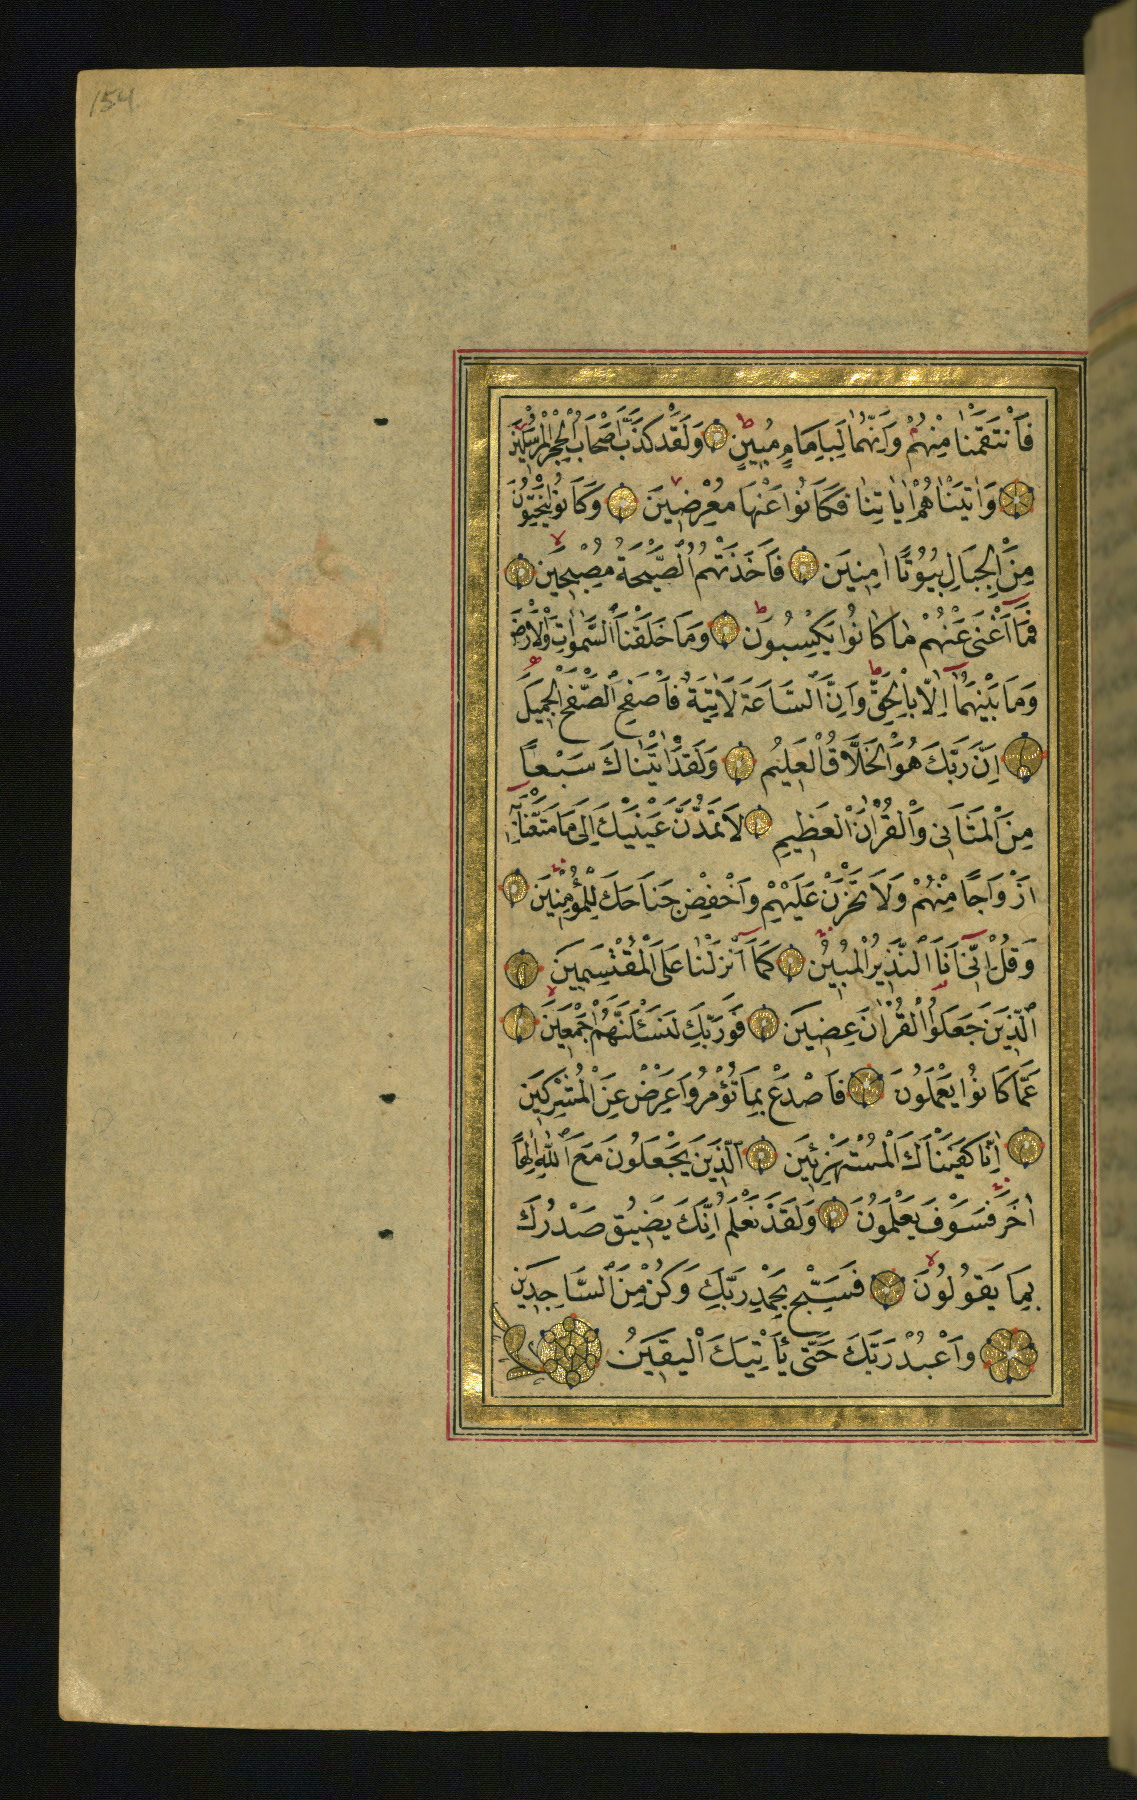 154
فَانْتَقَمْنَا مِنْهُمْ وَاِنَّهُمَا لَبِاِمَامٍ مُبٖينٍ وَلَقَدْ كَذَّبَ اَصْحَابُ الْحِجْرِ الْمُرْسَلٖينَ
وَاٰتَيْنَاهُمْ اٰيَاتِنَا فَكَانُوا عَنْهَا مُعْرِضٖينَ وَكَانُوا يَنْحِتُونَ
مِنَ الْجِبَالِ بُيُوتًا اٰمِنٖينَ فَاَخَذَتْهُمُ الصَّيْحَةُ مُصْبِحٖينَ
فَمَا اَغْنٰى عَنْهُمْ مَا كَانُوا يَكْسِبُونَ وَمَا خَلَقْنَا السَّمٰوَاتِ وَالْاَرْضَ
وَمَا بَيْنَهُمَا اِلَّا بِالْحَقِّ وَاِنَّ السَّاعَةَ لَاٰتِيَةٌ فَاصْفَحِ الصَّفْحَ الْجَمٖيلَ
اِنَّ رَبَّكَ هُوَ الْخَلَّاقُ الْعَلٖيمُ وَلَقَدْ اٰتَيْنَاكَ سَبْعًا
مِنَ الْمَثَانٖى وَالْقُرْاٰنَ الْعَظٖيمَ لَا تَمُدَّنَّ عَيْنَيْكَ اِلٰى مَا مَتَّعْنَا بِهٖ
اَزْوَاجًا مِنْهُمْ وَلَا تَحْزَنْ عَلَيْهِمْ وَاخْفِضْ جَنَاحَكَ لِلْمُؤْمِنٖينَ
وَقُلْ اِنّٖى اَنَا النَّذٖيرُ الْمُبٖينُ كَمَا اَنْزَلْنَا عَلَى الْمُقْتَسِمٖينَ
اَلَّذٖينَ جَعَلُوا الْقُرْاٰنَ عِضٖينَ فَوَرَبِّكَ لَنَسْـَٔلَنَّهُمْ اَجْمَعٖينَ
عَمَّا كَانُوا يَعْمَلُونَ فَاصْدَعْ بِمَا تُؤْمَرُ وَاَعْرِضْ عَنِ الْمُشْرِكٖينَ
اِنَّا كَفَيْنَاكَ الْمُسْتَهْزِئٖينَ اَلَّذٖينَ يَجْعَلُونَ مَعَ اللّٰهِ اِلٰهًا
اٰخَرَ فَسَوْفَ يَعْلَمُونَ وَلَقَدْ نَعْلَمُ اَنَّكَ يَضٖيقُ صَدْرُكَ
بِمَا يَقُولُونَ فَسَبِّحْ بِحَمْدِ رَبِّكَ وَكُنْ مِنَ السَّاجِدٖينَ
وَاعْبُدْ رَبَّكَ حَتّٰى يَأْتِيَكَ الْيَقٖينُ